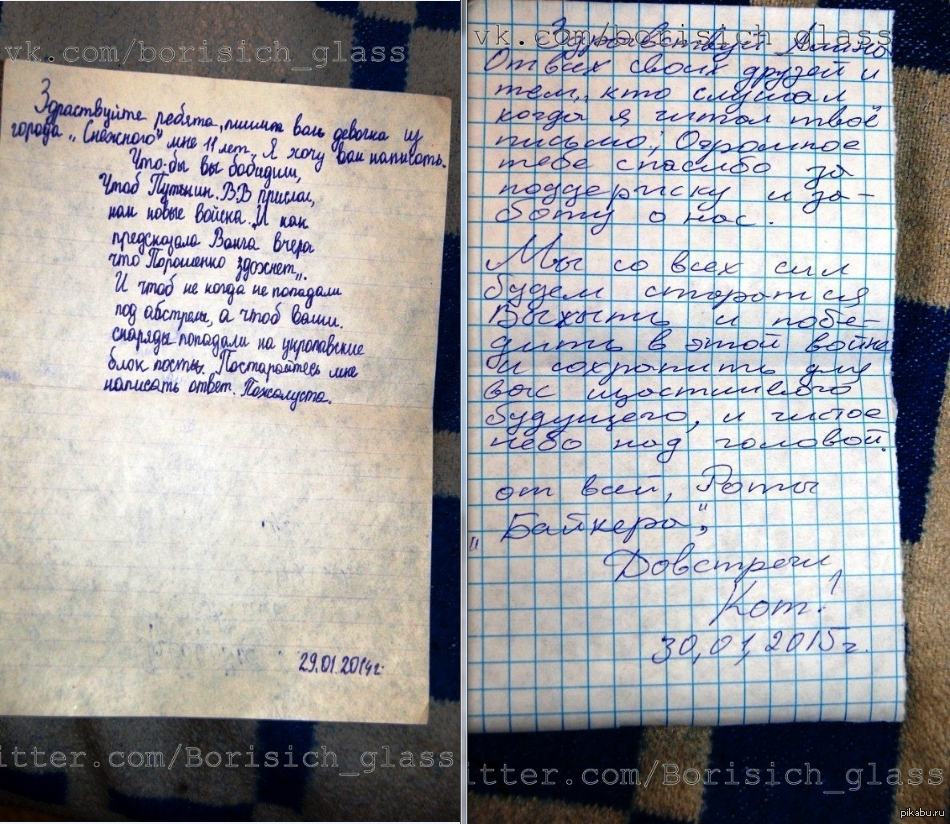 vk.com/borisich_glass
Здраствуйте ребята, пишит вам девочка из
города „Снежного" мне 11 лет. Я хочу вам написать.
Что-бы вы бабидили,
Чтоб Путынин. В.В прислал,
нам новые войска. И как
предсказала Ванга вчера
что Порошенко здохнет„.
И чтоб не когда не попадали
под абстрелы, а чтоб ваши.
снаряды попадали на укропавские
блок посты. Постарайтесь мне
написать ответ. Пожалуста.
29.01.2014г
itter.com/Borisich_glass
vk.com/borisich_glass
Здравствуй
От всех своих друзей и
тем, кто слушал
когда я читал твоё
письмо, Огромное
тебе спасибо за
поддержку и за-
боту о нас.
Мы со всех сил
будем старатся
Выжыть и побе-
дить в этой войне
и сохранить для
вас щастливого
будущего, и чистое
небо над головой.
от вай, Роты
"Байкера",
Довстречи
Кот!
30,01,2015г.
itter.com/Borisich_glass
pikabu.ru